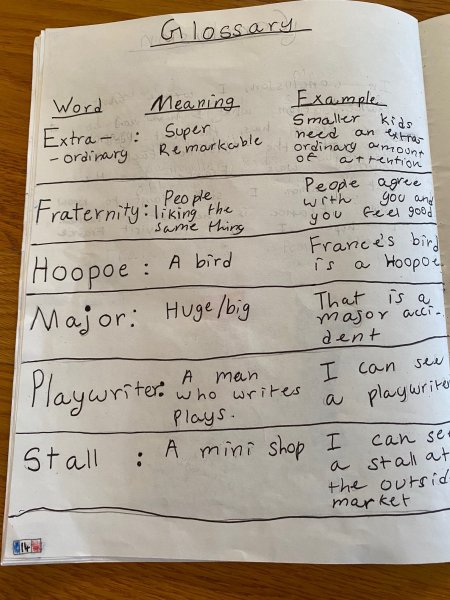 Glossary
Word Meaning Example
Extra- : Super Smaller kids
-ordinary Remarkable need an extra-
ordinary amount
of attention
Fraternity: People People agree
liking the with you and
same thing you feel good
Hoopoe : A bird France's bird
is a Hoopoe
Major: Huge/big That is a
major acci-
dent
Playwriter: A man I can see
who writes a playwriter
plays.
Stall : A mini shop I can see
a stall at
the outside
market
14